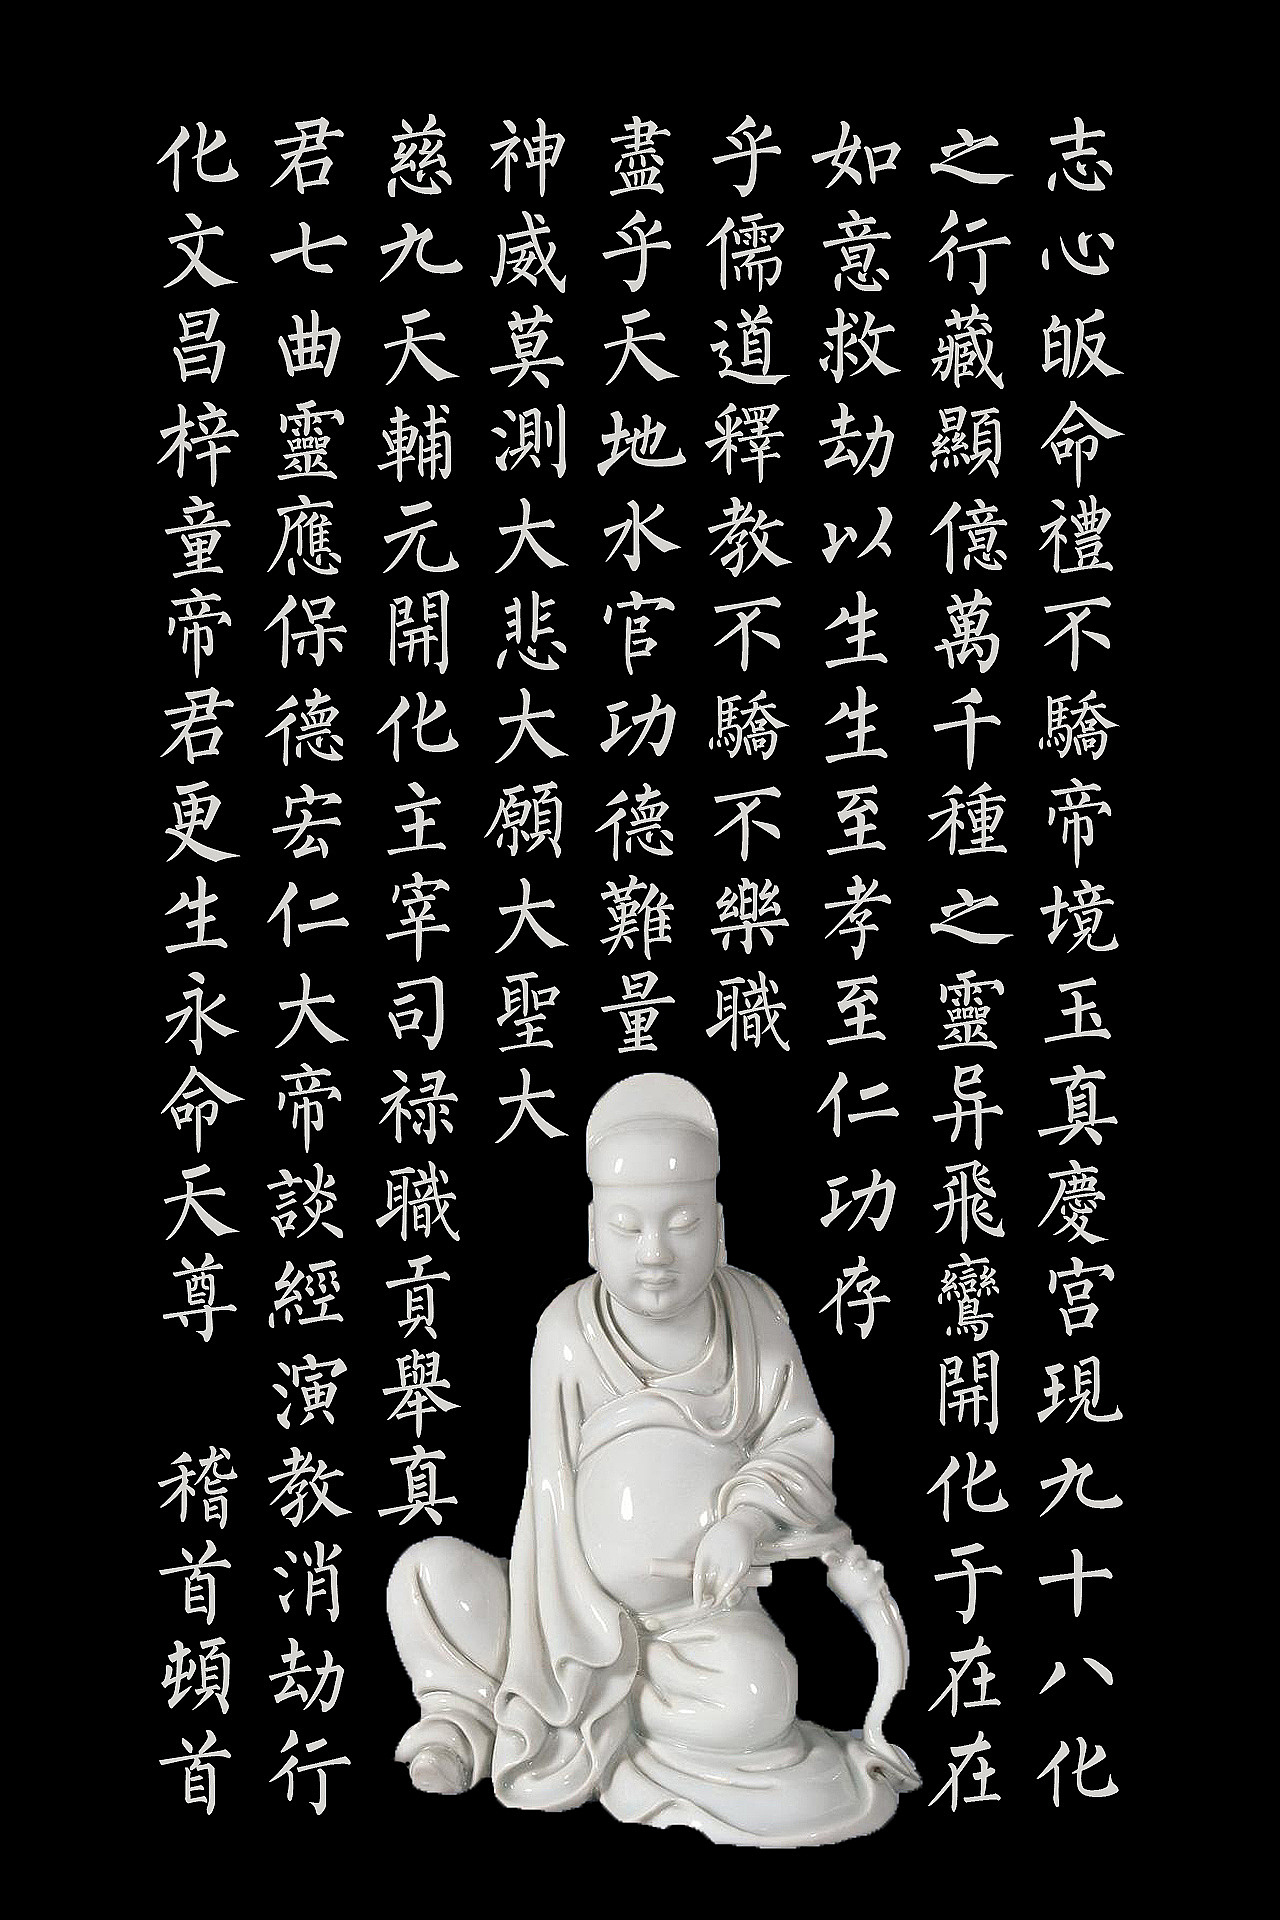 志心皈命禮不驕帝境玉真慶宮現九十八化
之行藏顯億萬千種之靈异飛鸞開化于在在
如意救劫以生生至孝至仁功存
乎儒道釋教不驕不樂職
盡乎天地水官功德難量
神威莫測大悲大願大聖大
慈九天輔元開化主宰司禄職貢舉真
君七曲靈應保德宏仁大帝談經演教消劫行
化文昌梓童帝君更生永命天尊 稽首頓首